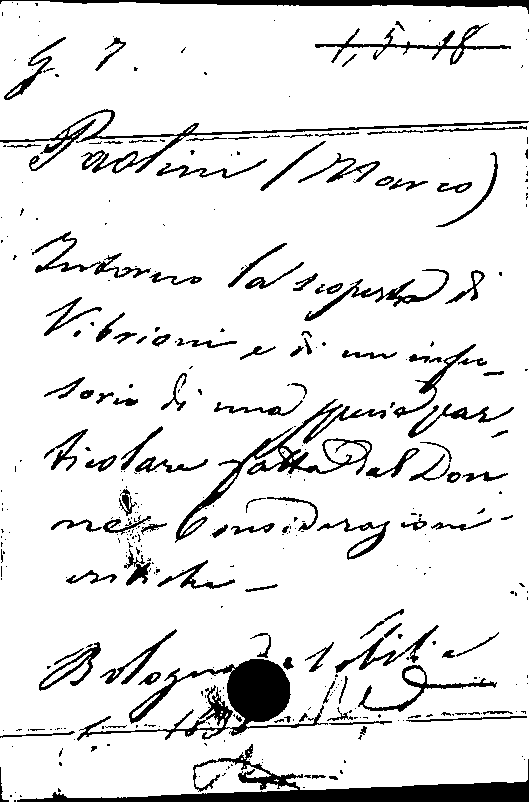 G. 7.
1, 5. 18
Paolini (Marco)
Intorno la scoperta di
Vibrioni e di un infu-
sorio di una specie par-
ticolare fatta dal Don-
ne - Considerazioni
critiche -
Bologna
1838